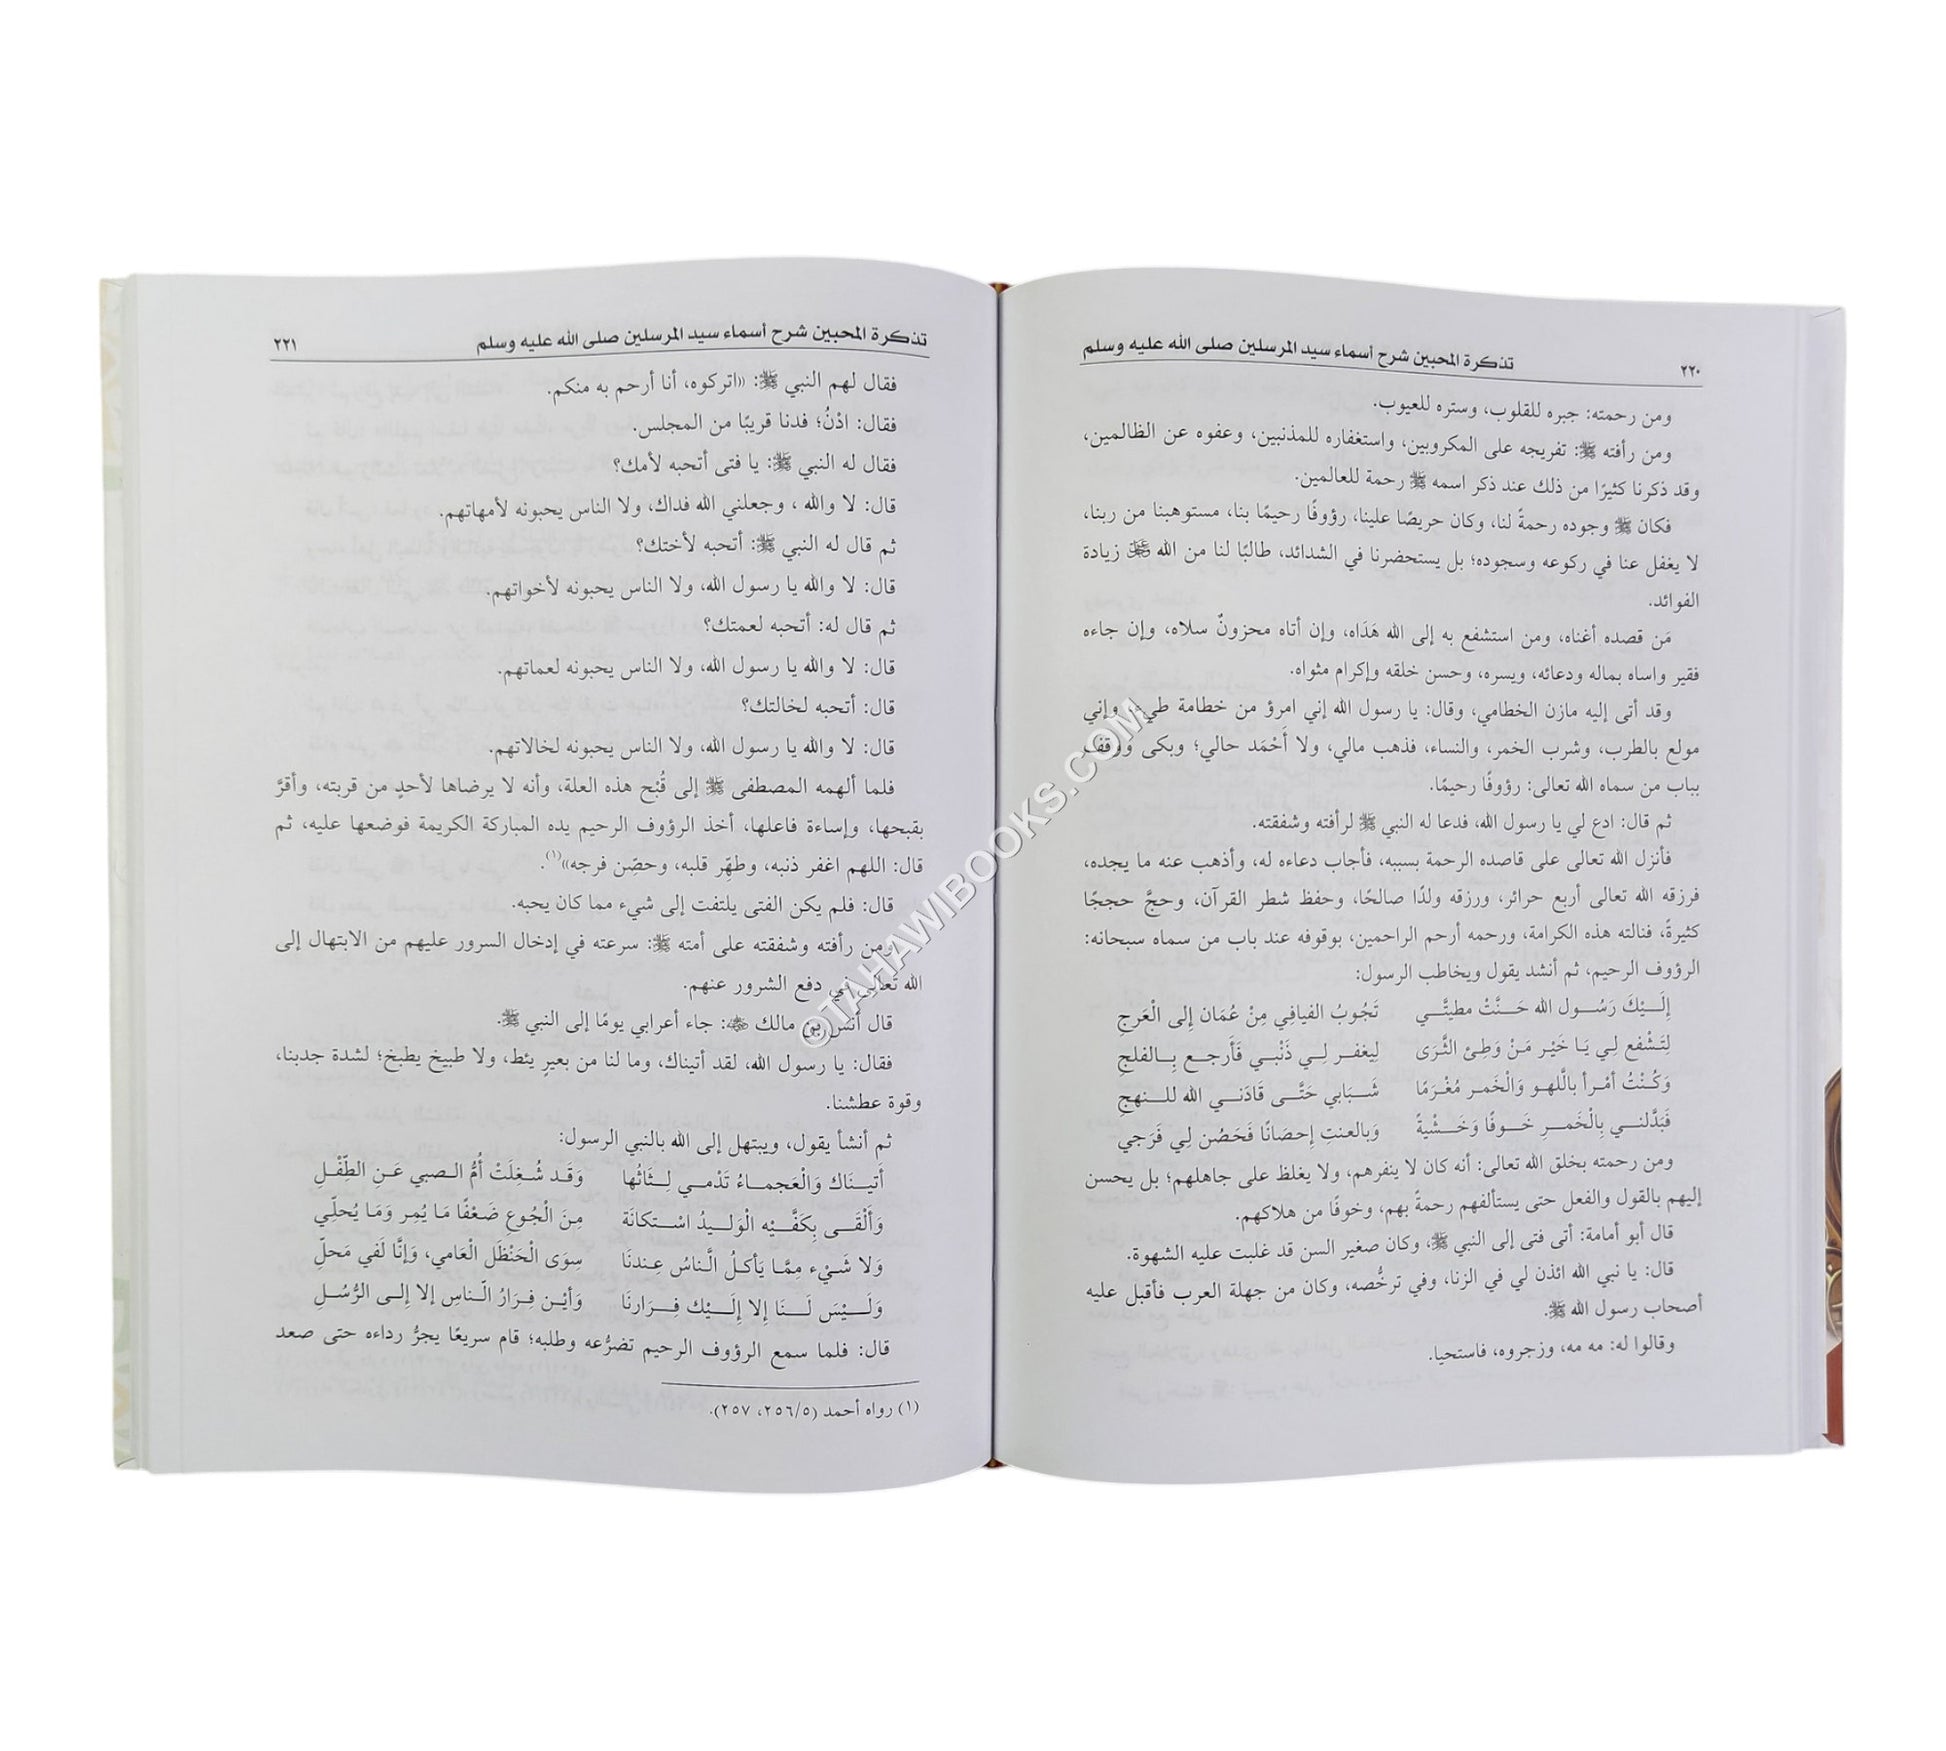 ٢٢٠ تذكرة المحبين شرح أسماء سيد المرسلين صلى الله عليه وسلم
ومن رحمته: جبره للقلوب، وستره للعيوب.
ومن رأفته ﷺ: تفريجه على المكروبين، واستغفاره للمذنبين، وعفوه عن الظالمين،
وقد ذكرنا كثيرًا من ذلك عند ذكر اسمه ﷺ رحمة للعالمين.
فكان ﷺ وجوده رحمةً لنا، وكان حريصًا علينا، رؤوفًا رحيمًا بنا، مستوهبنا من ربنا،
لا يغفل عنا في ركوعه وسجوده؛ بل يستحضرنا في الشدائد، طالبًا لنا من الله ﷻ زيادة
الفوائد.
مَن قصده أغناه، ومن استشفع به إلى الله هَدَاه، وإن أتاه محزونٌ سلاه، وإن جاءه
فقير واساه بماله ودعائه، ويسره، وحسن خلقه وإكرام مثواه.
وقد أتى إليه مازن الخطامي، وقال: يا رسول الله إني امرؤ من خطامة طيئ، وإني
مولع بالطرب، وشرب الخمر، والنساء، فذهب مالي، ولا أَحْمَد حالي؛ وبكى ووقف
بباب من سماه الله تعالى: رؤوفًا رحيمًا.
ثم قال: ادع لي يا رسول الله، فدعا له النبي ﷺ لرأفته وشفقته.
فأنزل الله تعالى على قاصده الرحمة بسببه، فأجاب دعاءه له، وأذهب عنه ما يجده،
فرزقه الله تعالى أربع حرائر، ورزقه ولدًا صالحًا، وحفظ شطر القرآن، وحجَّ حججًا
كثيرةً، فنالته هذه الكرامة، ورحمه أرحم الراحمين، بوقوفه عند باب من سماه سبحانه:
الرؤوف الرحيم، ثم أنشد يقول ويخاطب الرسول:
إِلَـيْكَ رَسُـول الله حَـنَّتْ مطيتَّـي تَجُوبُ الفيافي مِنْ عُمَان إلى الْعَرجِ
لِتَشْفع لي يَا خَيْر مَنْ وَطِئ الثَّرَى لِيغفـر لِـي ذَنْبـي فَأَرجـع بِـالفلجِ
وَكُنْتُ أمْرأ بالَّلهو وَالْخَمر مُغْرَمًا شَـبَابي حَتَّـى قَادَنـي الله للـنهجِ
فَبَدَّلنـي بِالْخَمـرِ خَـوفًا وَخَـشْيةً وَبالعنتِ إحصَانًا فَحَصُن لِي فَرَجي
ومن رحمته بخلق الله تعالى: أنه كان لا ينفرهم، ولا يغلظ على جاهلهم؛ بل يحسن
إليهم بالقول والفعل حتى يستألفهم رحمةً بهم، وخوفًا من هلاكهم.
قال أبو أمامة: أتى فتى إلى النبي ﷺ، وكان صغير السن قد غلبت عليه الشهوة.
قال: يا نبي الله ائذن لي في الزنا، وفي ترخُّصه، وكان من جهلة العرب فأقبل عليه
أصحاب رسول الله ﷺ.
وقالوا له: مه مه، وزجروه، فاستحيا.
تذكرة المحبين شرح أسماء سيد المرسلين صلى الله عليه وسلم ٢٢١
فقال لهم النبي ﷺ: «اتركوه، أنا أرحم به منكم.
فقال: ادْنُ؛ فدنا قريبًا من المجلس.
فقال له النبي ﷺ: يا فتى أتحبه لأمك؟
قال: لا والله ، وجعلني الله فداك، ولا الناس يحبونه لأمهاتهم.
ثم قال له النبي ﷺ: أتحبه لأختك؟
قال: لا والله يا رسول الله، ولا الناس يحبونه لأخواتهم.
ثم قال له: أتحبه لعمتك؟
قال: لا والله يا رسول الله، ولا الناس يحبونه لعماتهم.
قال: أتحبه لخالتك؟
قال: لا والله يا رسول الله، ولا الناس يحبونه لخالاتهم.
فلما ألهمه المصطفى ﷺ إلى قُبْح هذه العلة، وأنه لا يرضاها لأحدٍ من قربته، وأقرَّ
بقبحها، وإساءة فاعلها، أخذ الرؤوف الرحيم يده المباركة الكريمة فوضعها عليه، ثم
قال: اللهم اغفر ذنبه، وطهِّر قلبه، وحصِّن فرجه»(١).
قال: فلم يكن الفتى يلتفت إلى شيء مما كان يحبه.
ومن رأفته وشفقته على أمته ﷺ: سرعته في إدخال السرور عليهم من الابتهال إلى
الله تعالى في دفع الشرور عنهم.
قال أنس بن مالك ﵁: جاء أعرابي يومًا إلى النبي ﷺ.
فقال: يا رسول الله، لقد أتيناك، وما لنا من بعيرٍ يئط، ولا طبيخ يطبخ؛ لشدة جدبنا،
وقوة عطشنا.
ثم أنشأ يقول، ويبتهل إلى الله بالنبي الرسول:
أَتيـنَاك وَالْعَجمـاءُ تَدْمـي لِـثَاثُها وَقَـد شُـغِلَتْ أُمُّ الـصبي عَـنِ الطِّفْلِ
وَأَلْقَـى بِكَفَّـيْه الْوَلـيدُ اسْـتكانَة مِنَ الْجُوعِ ضَعْفًا مَا يُمِر وَمَا يُحلِّي
وَلا شَـيْء مِمَّـا يَأكـلُ الَّـناسُ عِـندنَا سِوَى الْحَنْظَل الْعَامي، وَإِنَّا لَفي مَحلِّ
وَلَـيْسَ لَـنَا إِلا إِلَـيْك فِـرَارنَا وَأيْـن فِـرَارُ الَّـناسِ إلا إلـى الرُّسُـلِ
قال: فلما سمع الرؤوف الرحيم تضرُّعه وطلبه؛ قام سريعًا يجرُّ رداءه حتى صعد
(١) رواه أحمد (٢٥٦/٥، ٢٥٧).
©TAHAWIBOOKS.COM